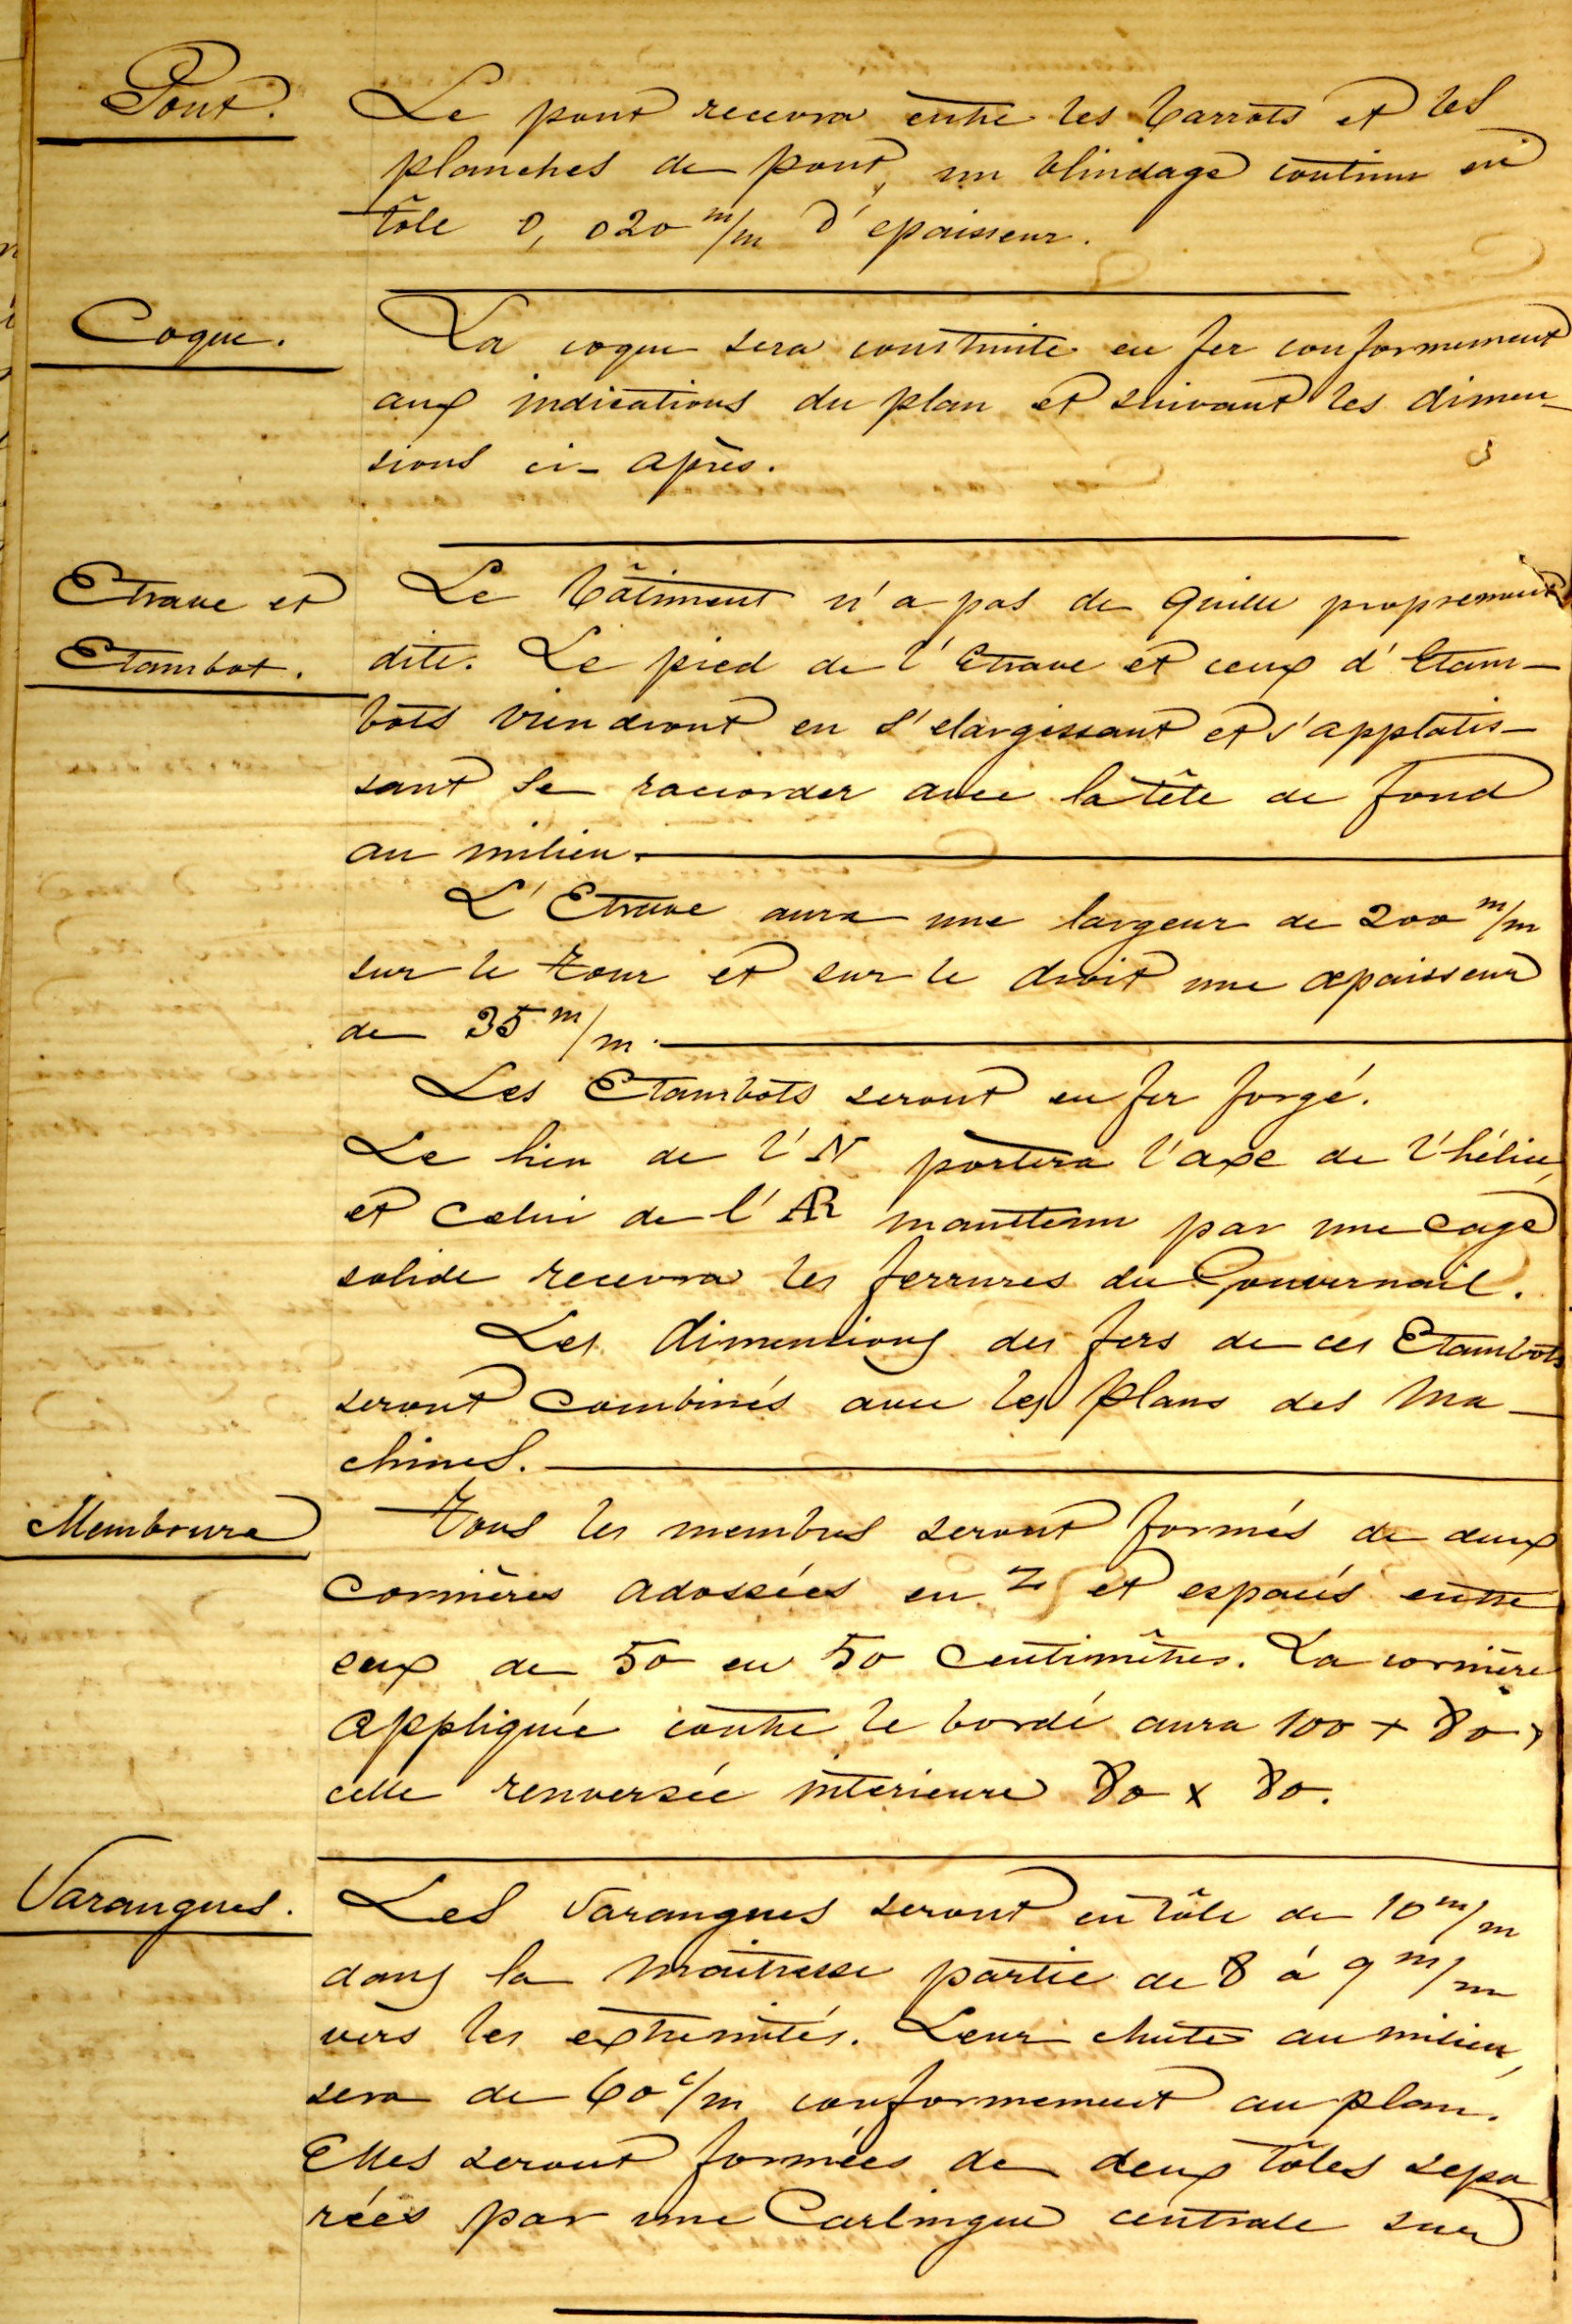 Pont.
Le pont recevra entre les barrots et les
planches de pont, un blindage continu en
tôle 0,020 m/m d'epaisseur.
Coque.
La coque sera construite en fer conformement
aux indications du plan et suivant les dimen-
sions ci-après.
Etrave et
Etambot.
Le bâtiment n'a pas de quille proprement
dite. Le pied de l'Etrave et ceux d'Etam-
bots viendront en s'elargissant et s'applatis-
sant se raccorder avec la tête de fond
au milieu.
L'Etrave aura une largeur de 200 m/m
sur le tour et sur le droit une epaisseur
de 35 m/m.
Les Etambots seront en fer forgé.
Le lieu de l'N portera l'axe de l'hélice,
et celui de l'AR maintenu par une cage
solide recevra les ferrures du Gouvernail.
Les dimensions des fers de ces Etambots
seront combinés avec les plans des ma-
chines.
Membrure
Tous les membres seront formés de deux
cornières adossées en Z et espacés entre
eux de 50 en 50 centimêtres. La cornière
appliquée contre le bordé aura 100 + 80,
celle renversée interieure 80 x 80.
Varangues.
Les Varangues seront en tôle de 10 m/m
dans la maitresse partie de 8 à 9 m/m
vers les extremités. Leur chute au milieu,
sera de 60 c/m conformement au plan.
Elles seront formées de deux tôles sepa
rées par une Carlingue centrale sur